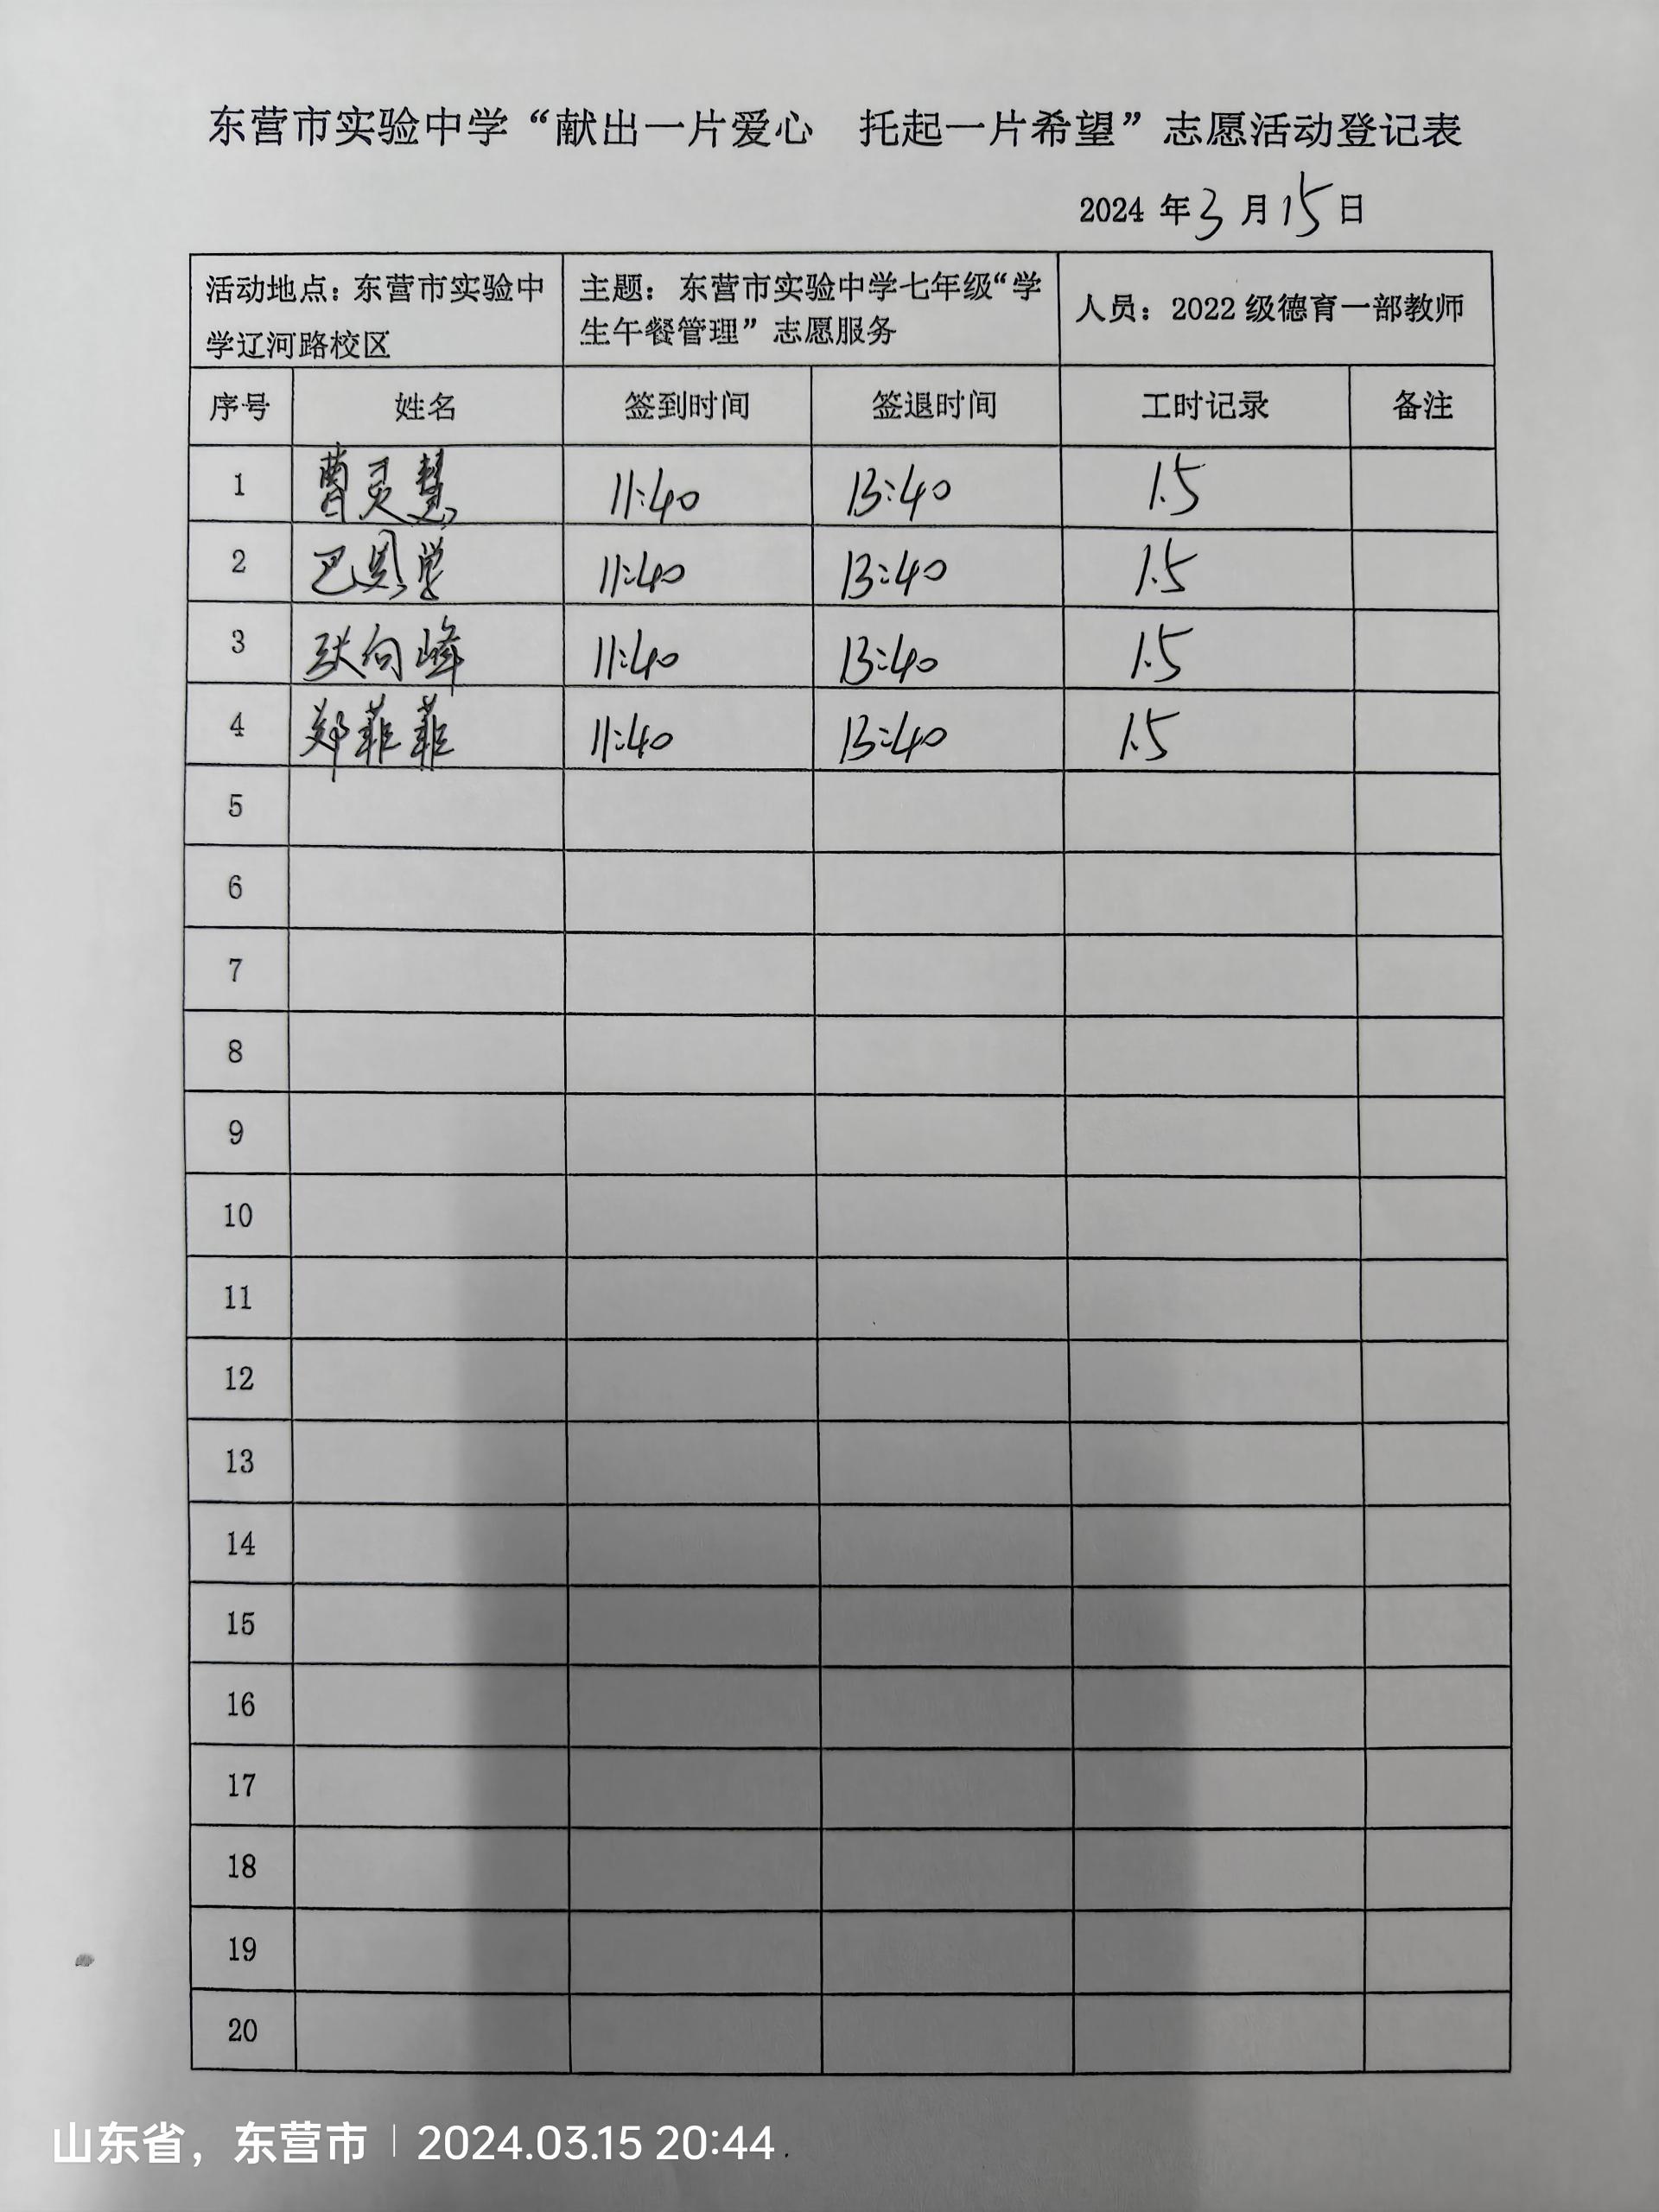 东营市实验中学“献出一片爱心 托起一片希望”志愿活动登记表
2024 年 3 月 15 日
活动地点：东营市实验中
学辽河路校区
主题：东营市实验中学七年级“学
生午餐管理”志愿服务
人员：2022 级德育一部教师
序号 姓名 签到时间 签退时间 工时记录 备注
1 曹灵慧 11:40 13:40 1.5
2 巴恩学 11:40 13:40 1.5
3 耿向峰 11:40 13:40 1.5
4 郑菲菲 11:40 13:40 1.5
5
6
7
8
9
10
11
12
13
14
15
16
17
18
19
20
山东省，东营市 | 2024.03.15 20:44